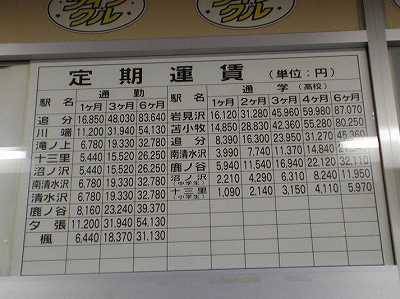 クル
定期運賃 (単位:円)
通勤 通学 (高校)
駅名 1ヶ月 3ヶ月 6ヶ月 駅名 1ヶ月 2ヶ月 3ヶ月 4ヶ月 6ヶ月
追分 16,850 48,030 83,640 岩見沢 16,120 31,280 45,960 59,980 87,070
川端 11,200 31,940 54,130 苫小牧 14,850 28,830 42,360 55,280 80,250
滝ノ上 6,780 19,330 32,780 追分 8,390 16,300 23,950 31,270 45,360
十三里 5,440 15,520 26,250 南清水沢 3,990 7,740 11,370 14,840
沼ノ沢 5,440 15,520 26,250 鹿ノ谷 5,940 11,540 16,940 22,120 32,110
南清水沢 6,780 19,330 32,780 沼ノ沢 (中学生) 2,210 4,290 6,310 8,240 11,950
清水沢 6,780 19,330 32,780 十三里 (中学生) 1,090 2,140 3,150 4,110 5,970
鹿ノ谷 8,160 23,240 39,370
夕張 11,200 31,940 54,130
楓 6,440 18,370 31,130